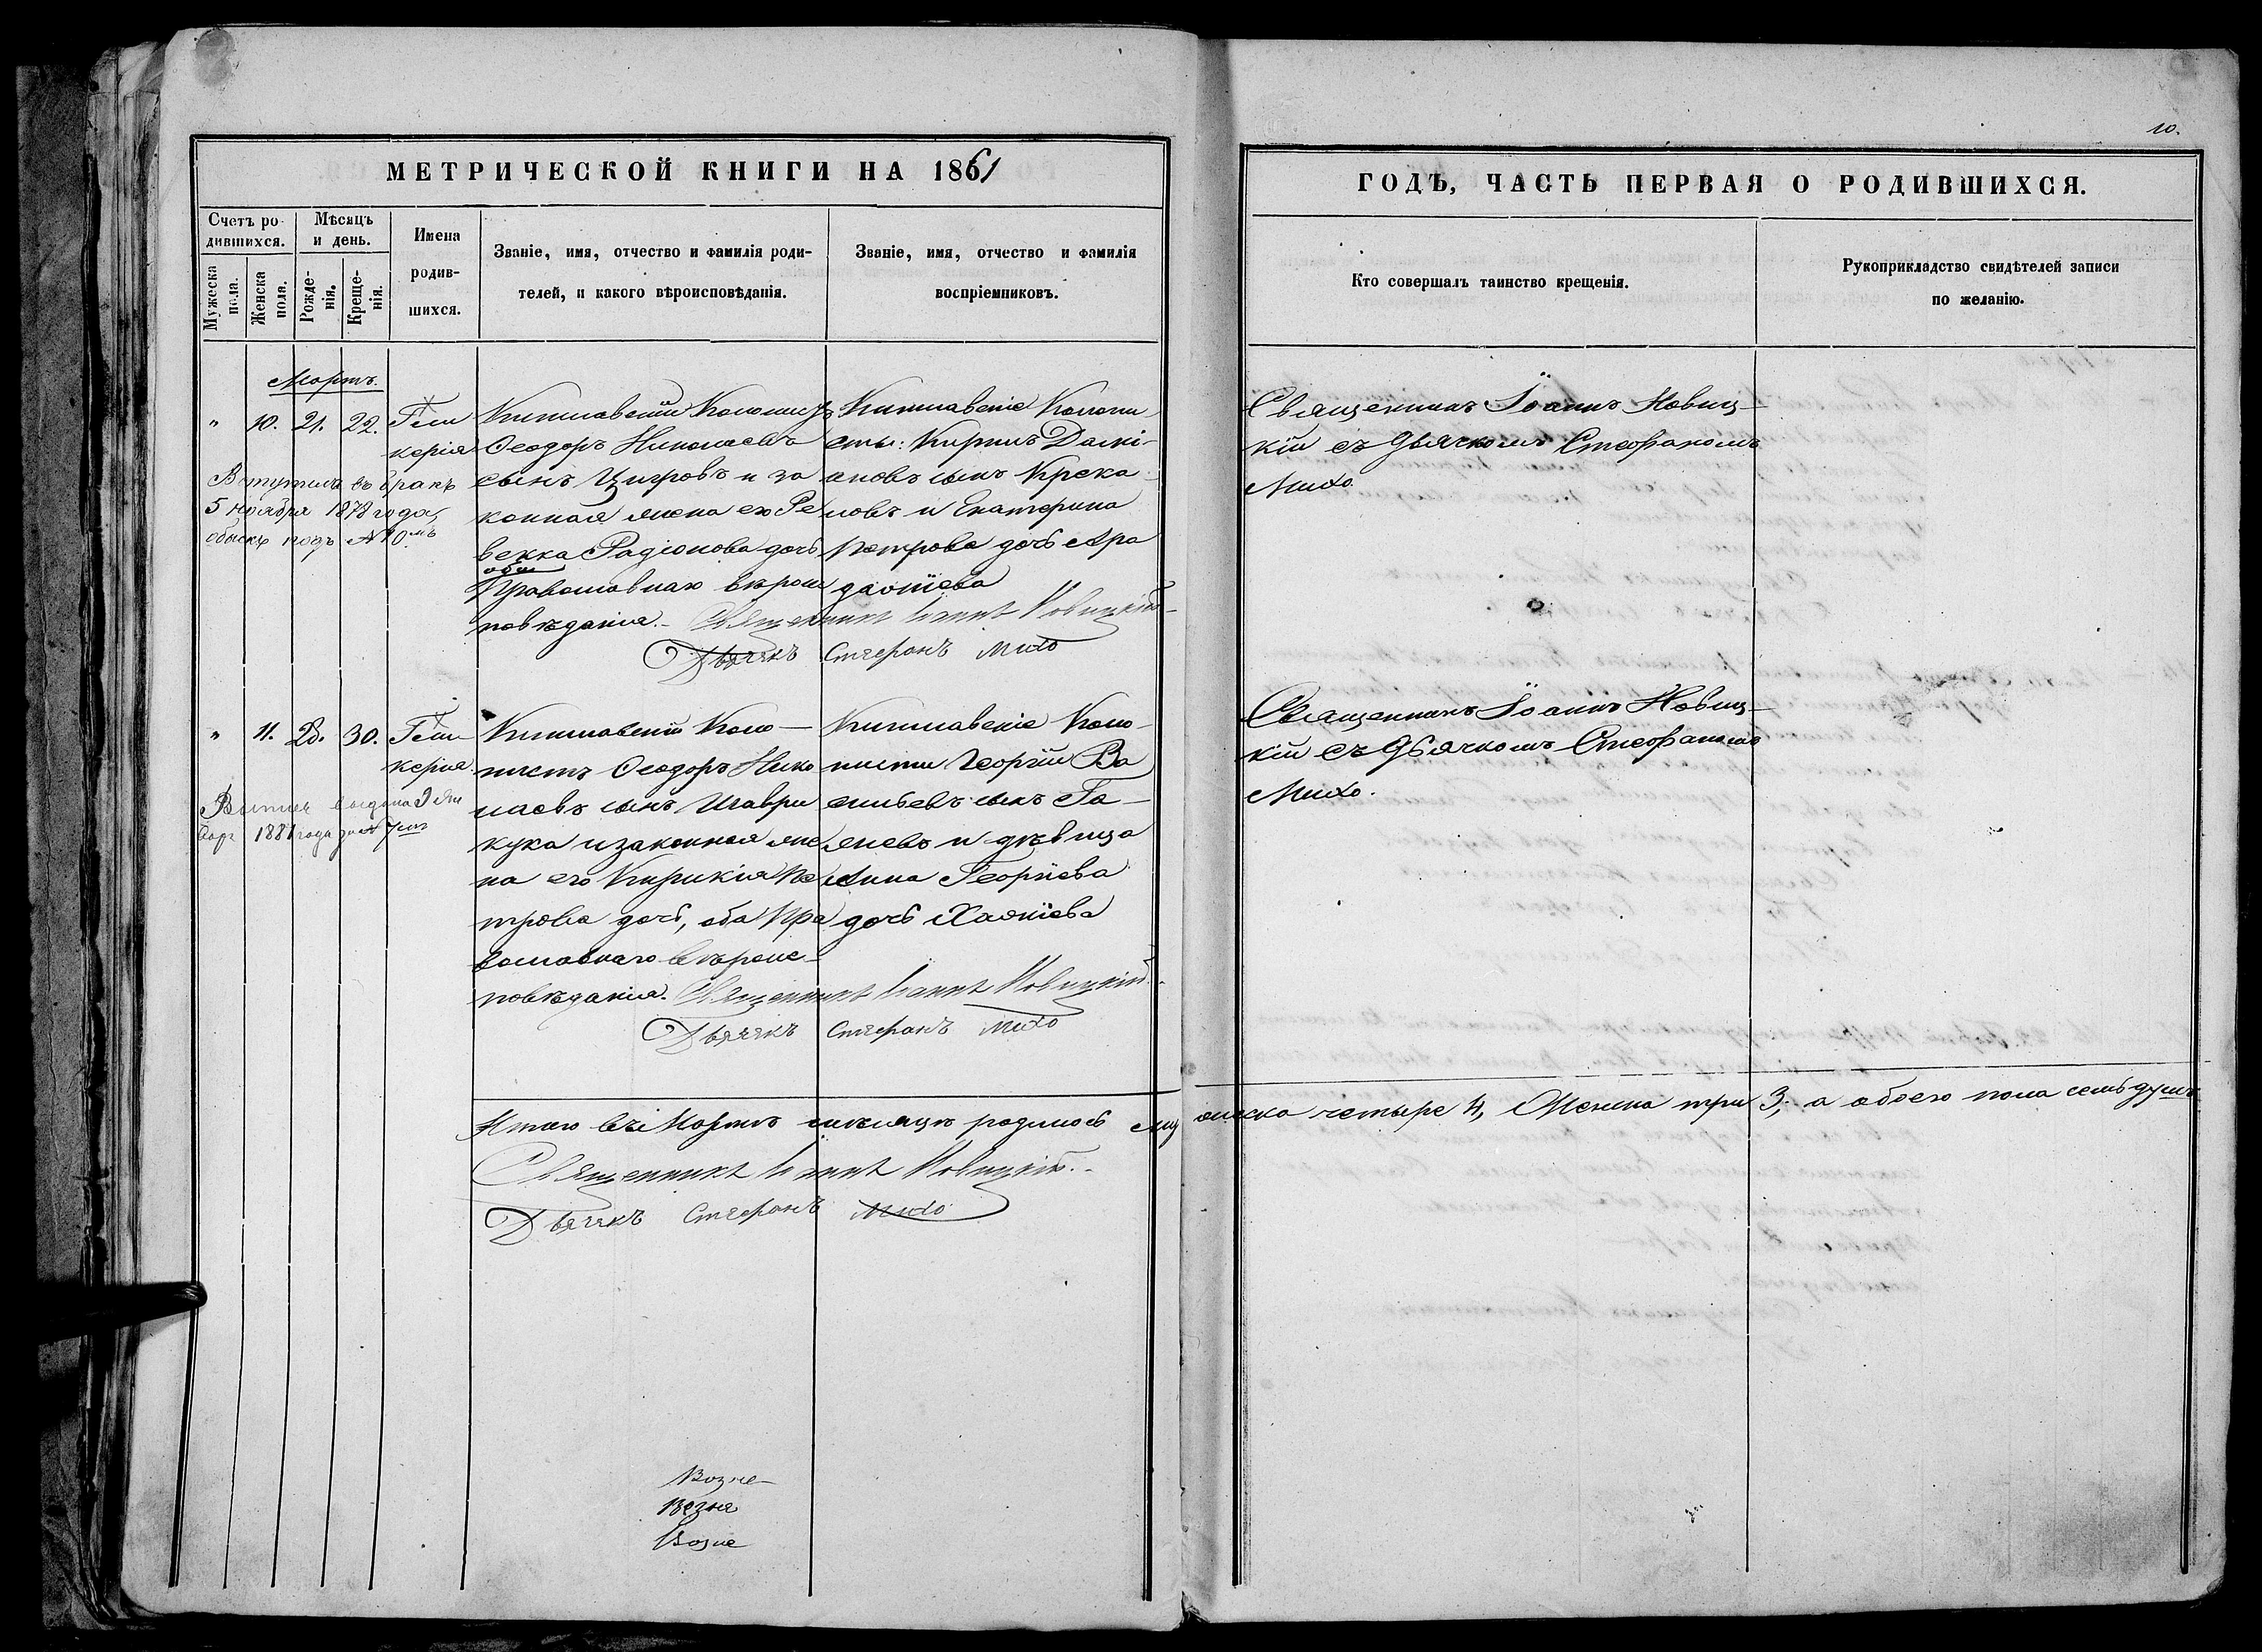 10.
МЕТРИЧЕСКОЙ КНИГИ НА 1861
ГОДЪ, ЧАСТЬ ПЕРВАЯ О РОДИВШИХСЯ.
Счетъ ро-
дившихся.
Мужеска пола.
Женска пола.
Мѣсяцъ
и день.
Рожде-
нія.
Креще-
нія.
Имена
родив-
шихся.
Званіе, имя, отчество и фамилія роди-
телей, и какого вѣроисповѣданія.
Званіе, имя, отчество и фамилія
воспріемниковъ.
Кто совершалъ таинство крещенія.
Рукоприкладство свидѣтелей записи
по желанію.
Мартъ.
" 10. 21. 22. Гли
керія
Вступила въ бракъ
5 ноября 1878 года,
обыскъ подъ
Ѳеодоръ Николаевъ
сынъ и за
конная жена его Ре
векка Радіонова дочь
оба
Православнаго вѣроис
повѣданія. Священникъ Іоаннъ Новицкій
Дьячекъ Стефанъ Михо
Кишлавскіе Колони
сты:
новъ сынъ
и Екатерина
Петрова дочь
Священникъ Іоаннъ Новиц-
кій съ Дьячкомъ Стефаномъ
Михо.
" 11. 28. 30. Гли-
керія.
выдана 9 Ян
1881 года за
Кишлавскій Коло-
нистъ Ѳеодоръ Нико
лаевъ сынъ
и законная же
на его Кирикія Пе
трова дочь, оба Пра
вославнаго вѣроис-
повѣданія. Священникъ Іоаннъ Новицкій
Дьячекъ Стефанъ Михо
Кишлавскіе Коло-
нисты Георгій Ва
сильевъ сынъ
и дѣвица
Анна Георгіева
дочь
Священникъ Іоаннъ Новиц-
кій съ Дьячкомъ Стефаномъ
Михо.
Итого въ Мартѣ мѣсяцѣ родилось мужеска четыре 4, Женска три 3, а обоего пола семь душъ
Священникъ Іоаннъ Новицкій.
Дьячекъ Стефанъ Михо
Возне-
Возне